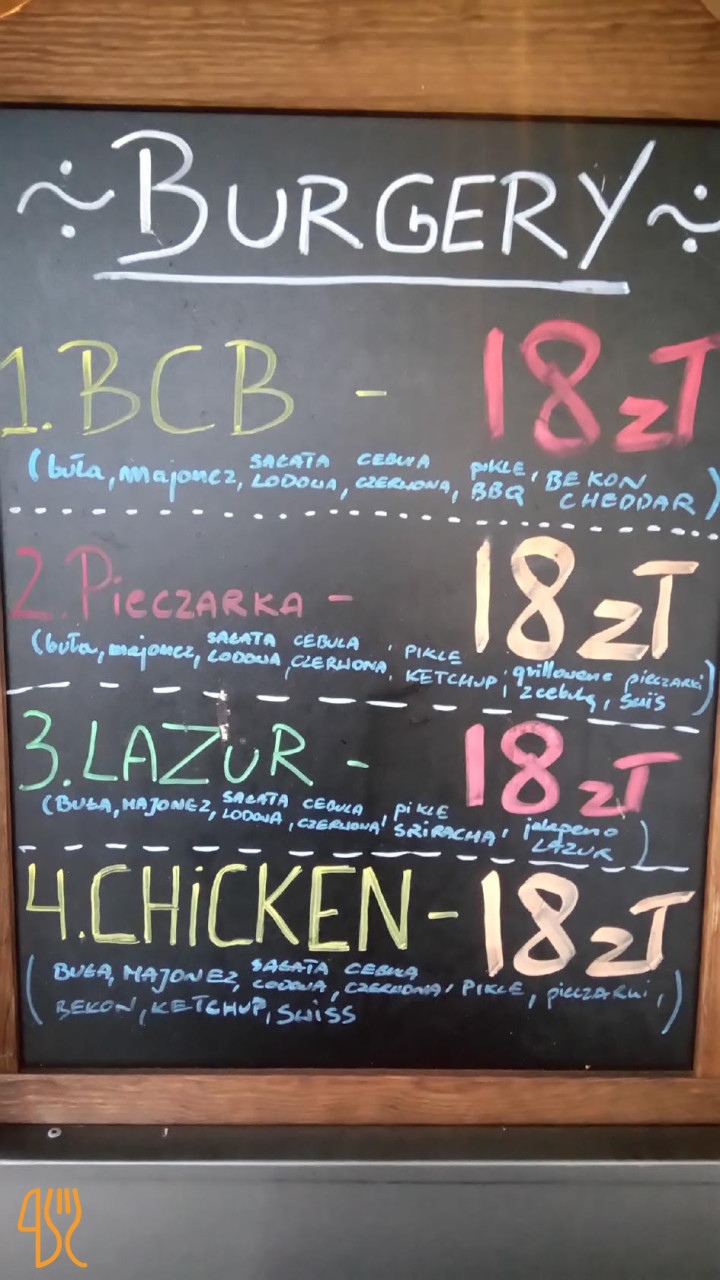 ~ BURGERY ~
1. BCB - 18 zł
(buła, majonez, SAŁATA LODOWA, CEBULA CZERWONA, PIKLE, BBQ BEKON CHEDDAR)
2. PIECZARKA - 18 zł
(buła, majonez, SAŁATA LODOWA, CEBULA CZERWONA, PIKLE, KETCHUP, grillowane pieczarki z cebulą, SWISS)
3. LAZUR - 18 zł
(BUŁA, MAJONEZ, SAŁATA LODOWA, CEBULA CZERWONA, PIKLE SRIRACHA, jalapeno LAZUR)
4. CHICKEN - 18 zł
(BUŁA, MAJONEZ, SAŁATA LODOWA, CEBULA CZERWONA, PIKLE, pieczarki,
BEKON, KETCHUP, SWISS